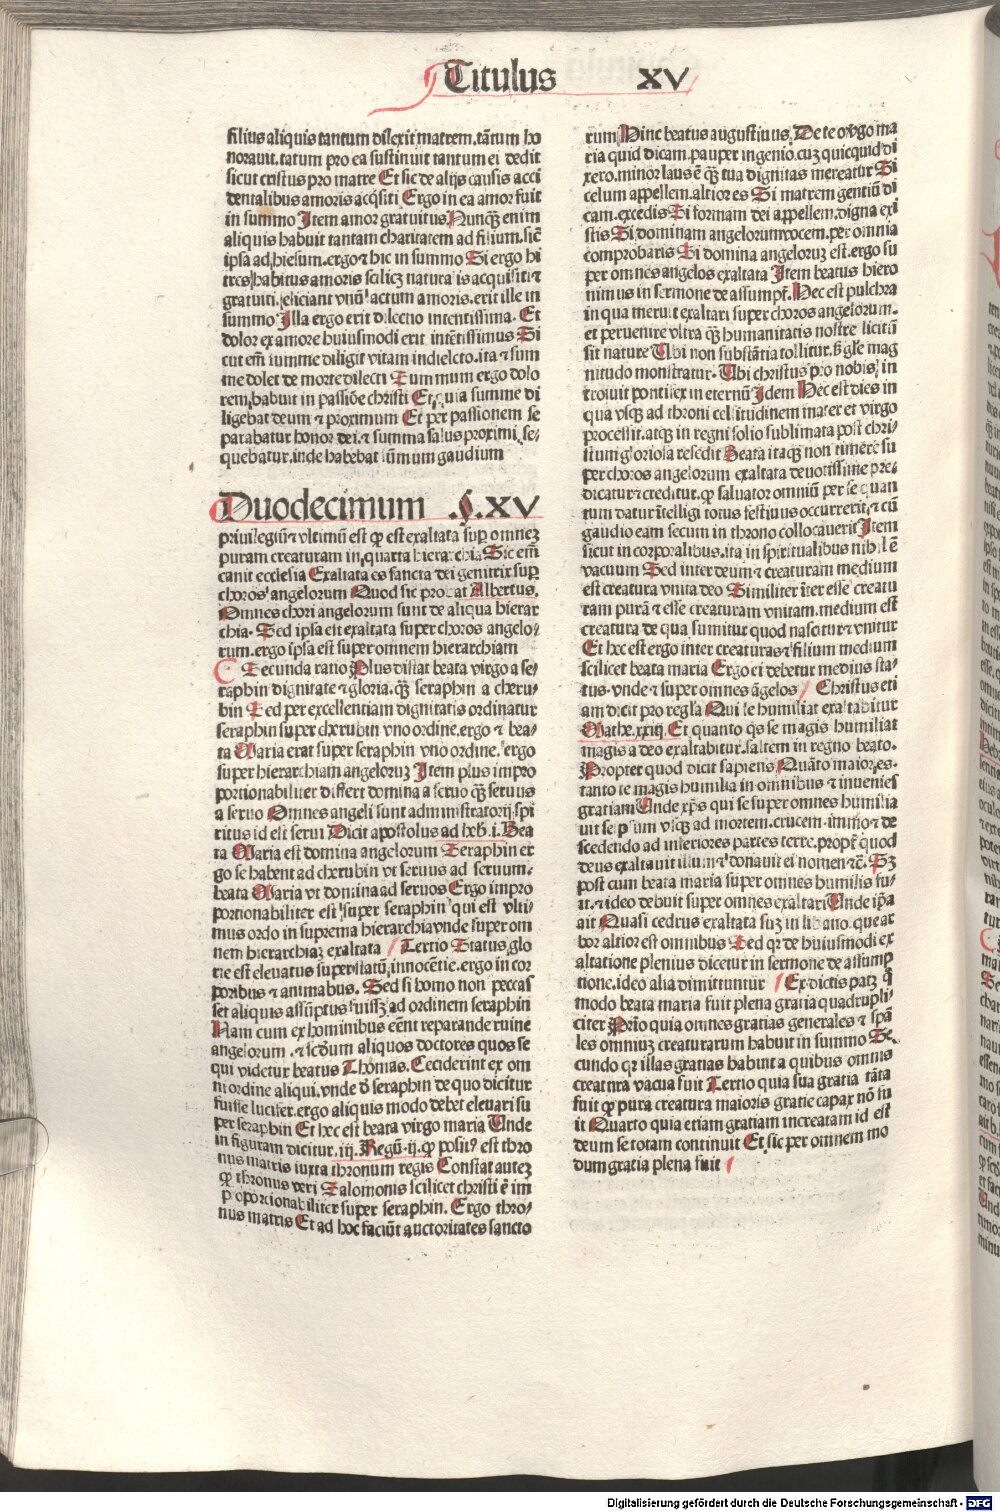 Titulus XV
filius aliquis tantum dilexit matrem. tātum ho
norauit. tatum pro ea sustinuit tantum ei dedit
sicut cristus pro matre Et sic de alijs causis acci
dentalibus amoris acq̄siti Ergo in ea amor fuit
in summo Item amor gratuitus. Nunqꝫ enim
aliquis habuit tantam charitatem ad filium. sic̄
ipsa ad hiesum. ergo ⁊ hic in summo Si ergo hi
tres habitus amoris scilicꝫ naturalis acquisiti ⁊
gratuiti. eliciant vnū actum amoris. erit ille in
summo Illa ergo erit dilectio intentissima. Et
dolor ex amore huiusmodi erit intētissimus Si
cut em̄ summe diligit vitam in dilecto. ita ⁊ sum
me dolet de morte dilecti Summum ergo dolo
rem habuit in passiōe christi Et quia summe di
ligebat deum ⁊ proximum Et per passionem se
parabatur honor dei. ⁊ summa salus proximi se⸗
quebatur. inde habebat sūmum gaudium
Duodecimum .§. XV
priuilegiū ⁊ vltimū est qp est exaltata suꝑ omneꝫ
puram creaturam in quarta hierarchia Sic em̄
canit ecclesia Exaltata es sancta dei genitrix suꝑ
choros angelorum Quod sic probat Albertus.
Omnes chori angelorum sunt de aliqua hierar
chia. Sed ipsa est exaltata super choros angelo⸗
rum. ergo ipsa est super omnem hierarchiam
Secunda ratio Plus distat beata virgo a se⸗
raphin dignitate ⁊ gloria. qꝫ̄ seraphin a cheru⸗
bin Sed per excellentiam dignitatis ordinatur
seraphin super cherubin vno ordine. ergo ⁊ bea⸗
ta Maria erat super seraphin vno ordine. ergo
super hierarchiam angeloruꝫ Item plus impro
portionabiliter differt domina a seruo qꝫ̄ seruus
a seruo Omnes angeli sunt administratorij spi
ritus id est serui Dicit apostolus ad heb. i. Bea
ta Maria est domina angelorum Seraphin er
go se habent ad cherubin vt seruus ad seruum.
beata Maria vt domina ad seruos Ergo impro
portionabiliter est super seraphin qui est vlti⸗
mus ordo in suprema hierarchia vnde super om
nem hierarchiaꝫ exaltata Tertio Status glo
rie est eleuatus super statū innocētie. ergo in cor
poribus ⁊ animabus. Sed si homo non peccas
set aliquis assūptus fuissꝫ ad ordinem seraphin
Nam cum ex hominibus eēnt reparande ruine
angelorum. ⁊ scd̄um aliquos doctores quos se
qui videtur beatus Thomas. Ceciderint ex om
ni ordine aliqui. vnde d̄ seraphin de quo dicitur
fuisse lucifer. ergo aliquis modo debet eleuari su
per seraphin Et hec est beata virgo maria Unde
in figuram dicitur. iij. Regū. ij. qp posit⁹ est thro
nus matris iuxta thronum regis Constat auteꝫ
qp thronus veri Salomonis scilicet christi ē im
proportionabiliter super seraphin. Ergo thro⸗
nus matris Et ad hoc faciūt auctoritates sancto
rum Hinc beatus augustinus. De te o virgo ma
ria quid dicam. pauper ingenio. cuꝫ quicquid di
xero. minor laus ē qꝫ̄ tua dignitas mereatur Si
celum appellem. altior es Si matrem gentiū di
cam. excedis Si formam dei appellem. digna exi
stis Si dominam angelorum vocem. per omnia
comprobaris Si domina angeloruꝫ est. ergo su
per omnes angelos exaltata Item beatus hiero
nimus in sermone de assumpt. Hec est pulchra
in qua meruit exaltari super choros angelorum.
et peruenire vltra qꝫ̄ humanitatis nostre licitū
sit nature Ubi non substātia tollitur. s̄ glē mag
nitudo monstratur. Ubi christus pro nobis in
troiuit pontifex in eternū Idem Hec est dies in
qua vsqꝫ ad throni celsitudinem mater et virgo
processit. atqꝫ in regni solio sublimata post chri⸗
stum gloriosa resedit Beata itaqꝫ non timere su
per choros angelorum exaltata deuotissime pre⸗
dicatur ⁊ creditur. qp saluator omniū per se quan
tum datur ītelligi totus festiuus occurrerit. ⁊ cū
gaudio eam secum in throno collocauerit Item
sicut in corporalibus. ita in spiritualibus nihil ē
vacuum Sed inter deum ⁊ creaturam medium
est creatura vnita deo Similiter īter esse creatu
ram purā ⁊ esse creaturam vnitam. medium est
creatura de qua sumitur quod nascitur ⁊ vnitur
Et hec est ergo inter creaturas ⁊ filium medium
scilicet beata maria Ergo ei debetur medius sta⸗
tus. vnde ⁊ super omnes āgelos Christus eti
am dicit pro regla Qui se humiliat exaltabitur
Mathe. xxiij. Et quanto qs̄ se magis humiliat
magis a deo exaltabitur. saltem in regno beato.
Propter quod dicit sapiens Quāto maior es.
tanto te magis humilia in omnibus ⁊ inuenies
gratiam Unde xp̄s qui se super omnes humilia
uit se ipsum vsqꝫ ad mortem. crucem. immo ⁊ de
scedendo ad inferiores partes terre. propt̄ quod
deus exaltauit illum ⁊ donauit ei nomen ⁊c̄. Sꝫ
post cum beata maria super omnes humilis fu⸗
it. ⁊ ideo debuit super omnes exaltari Unde ip̄a
ait Quasi cedrus exaltata suꝫ in libano. que ar
bor altior est omnibus Sed qr de huiusmodi ex
altatione plenius dicetur in sermone de assump
tione. ideo alia dimittuntur Ex dictis patꝫ q̄
modo beata maria fuit plena gratia quadrupli⸗
citer Prīo quia omnes gratias generales ⁊ spā
les omniuꝫ creaturarum habuit in summo Se⸗
cundo qr illas gratias habuit a quibus omnis
creatura vacua fuit Tertio quia sua gratia tāta
fuit qp pura creatura maioris gratie capax nō fu
it Quarto quia etiam gratiam increatam id est
deum se totam continuit Et sic per omnem mo
dum gratia plena fuit
Digitalisierung gefördert durch die Deutsche Forschungsgemeinschaft - DFG